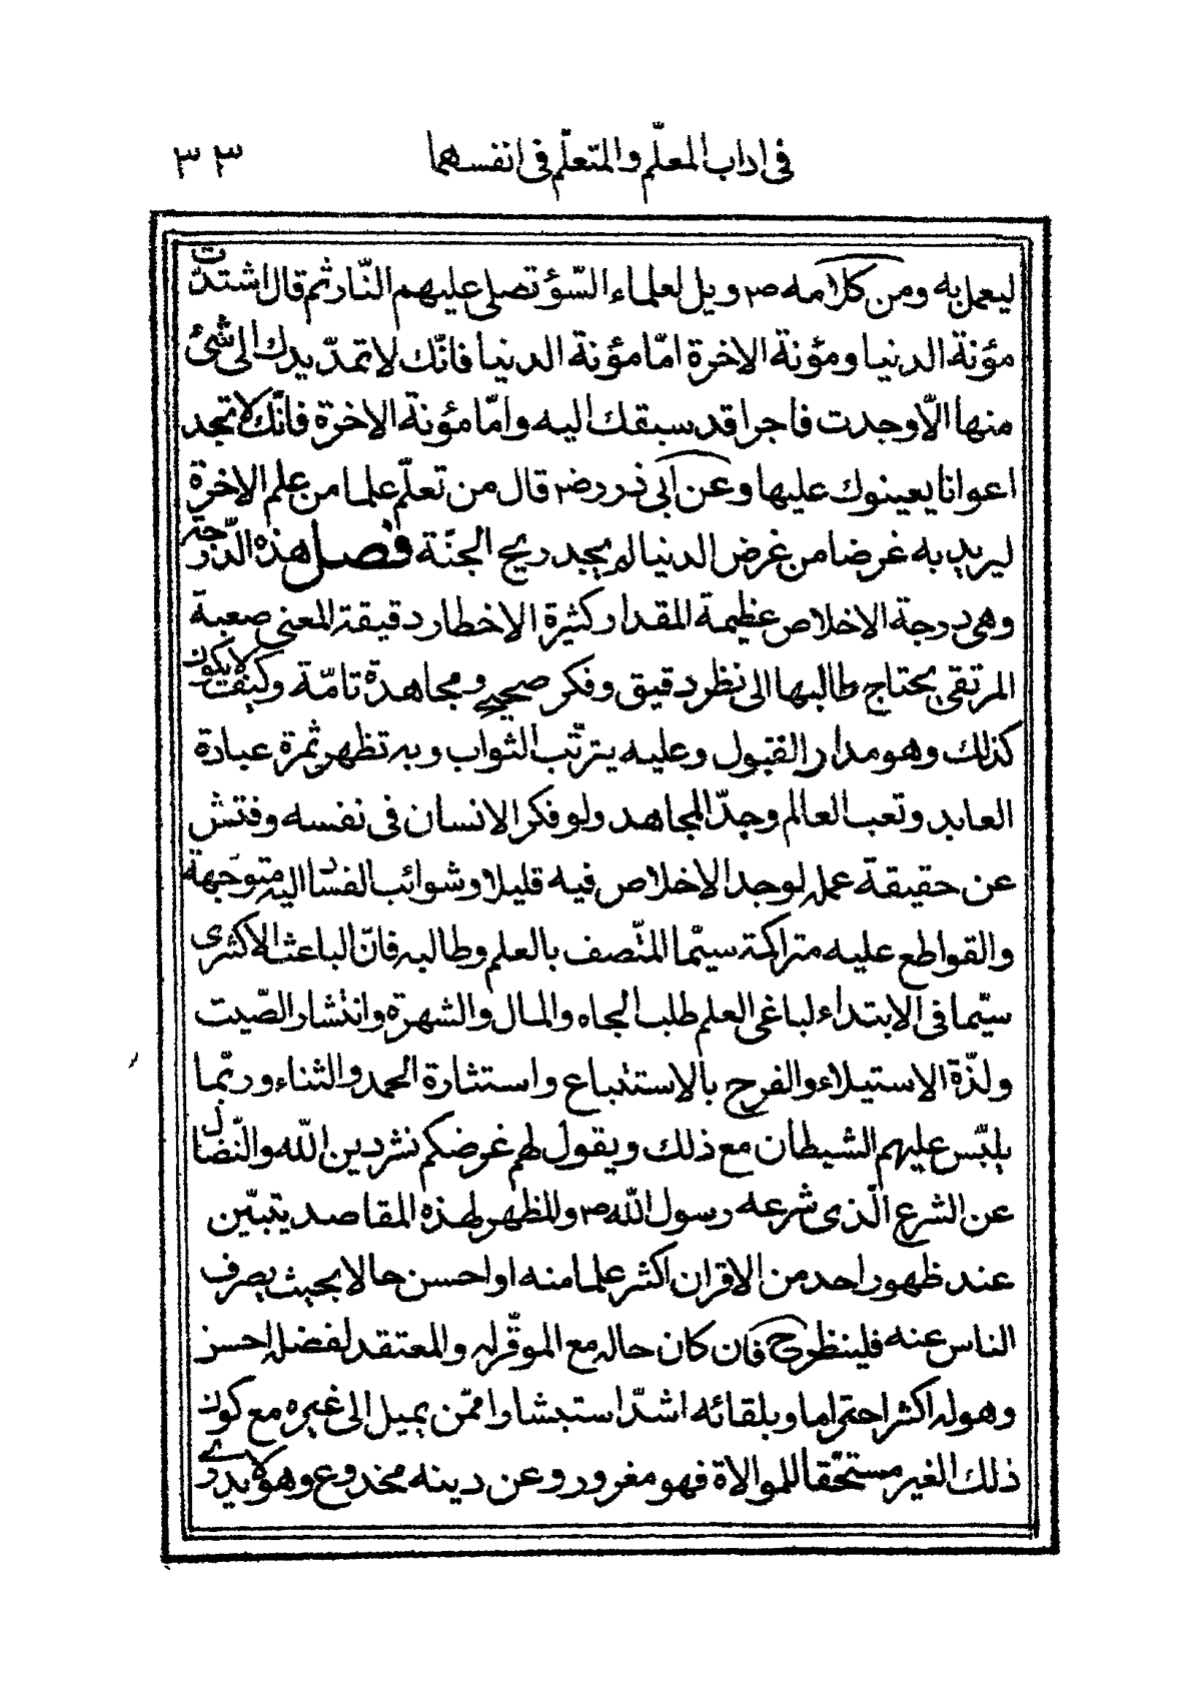 فى اداب المعلّم والمتعلّم فى انفسهما ٣٣
ليعمل به ومن كلامه ص ويل لعلماء السّؤ تصلى عليهم النّار ثم قال اشتدّت
مؤنة الدنيا ومؤنة الاخرة امّا مؤنة الدنيا فانّك لا تمدّ يدك الى شئ
منها الّا وجدت فاجرا قد سبقك اليه وامّا مؤنة الاخرة فانّك لا تجد
اعوانا يعينوك عليها وعن ابى ذر رض قال من تعلّم علما من علم الاخرة
ليريد به غرضا من غرض الدنيا لم يجد ريح الجنّة فصل هذه الدّرجة
وهى درجة الاخلاص عظيمة المقدار كثيرة الاخطار دقيقة المعنى صعبة
المرتقى يحتاج طالبها الى نظر دقيق وفكر صحيح ومجاهدة تامّة وكيف لا يكون
كذلك وهو مدار القبول وعليه يترتّب الثواب وبه تظهر ثمرة عبادة
العابد وتعب العالم وجدّ المجاهد ولو فكر الانسان فى نفسه وفتش
عن حقيقة عمله لوجد الاخلاص فيه قليلا وشوائب الفساد اليه متوجّهة
والقواطع عليه متراكمة سيّما المتّصف بالعلم وطالبه فانّ الباعث الاكثرى
سيّما فى الابتداء لباغى العلم طلب الجاه والمال والشهرة وانتشار الصّيت
ولذّة الاستيلاء والفرح بالاستتباع واستثارة الحمد والثناء وربّما
يلبّس عليهم الشيطان مع ذلك ويقول لهم غرضكم نشر دين اللّه والنّضال
عن الشرع الّذى شرعه رسول اللّه ص والمظهر لهذه المقاصد يتبيّن
عند ظهور احد من الاقران اكثر علما منه او احسن حالا بحيث يصرف
الناس عنه فلينظر ح فان كان حاله مع الموقّر له والمعتقد لفضله احسن
وهو له اكثر احتراما وبلقائه اشدّ استبشارا ممّن يميل الى غيره مع كون
ذلك الغير مستحّقا للموالاة فهو مغرور وعن دينه مخدوع وهو لا يدرى